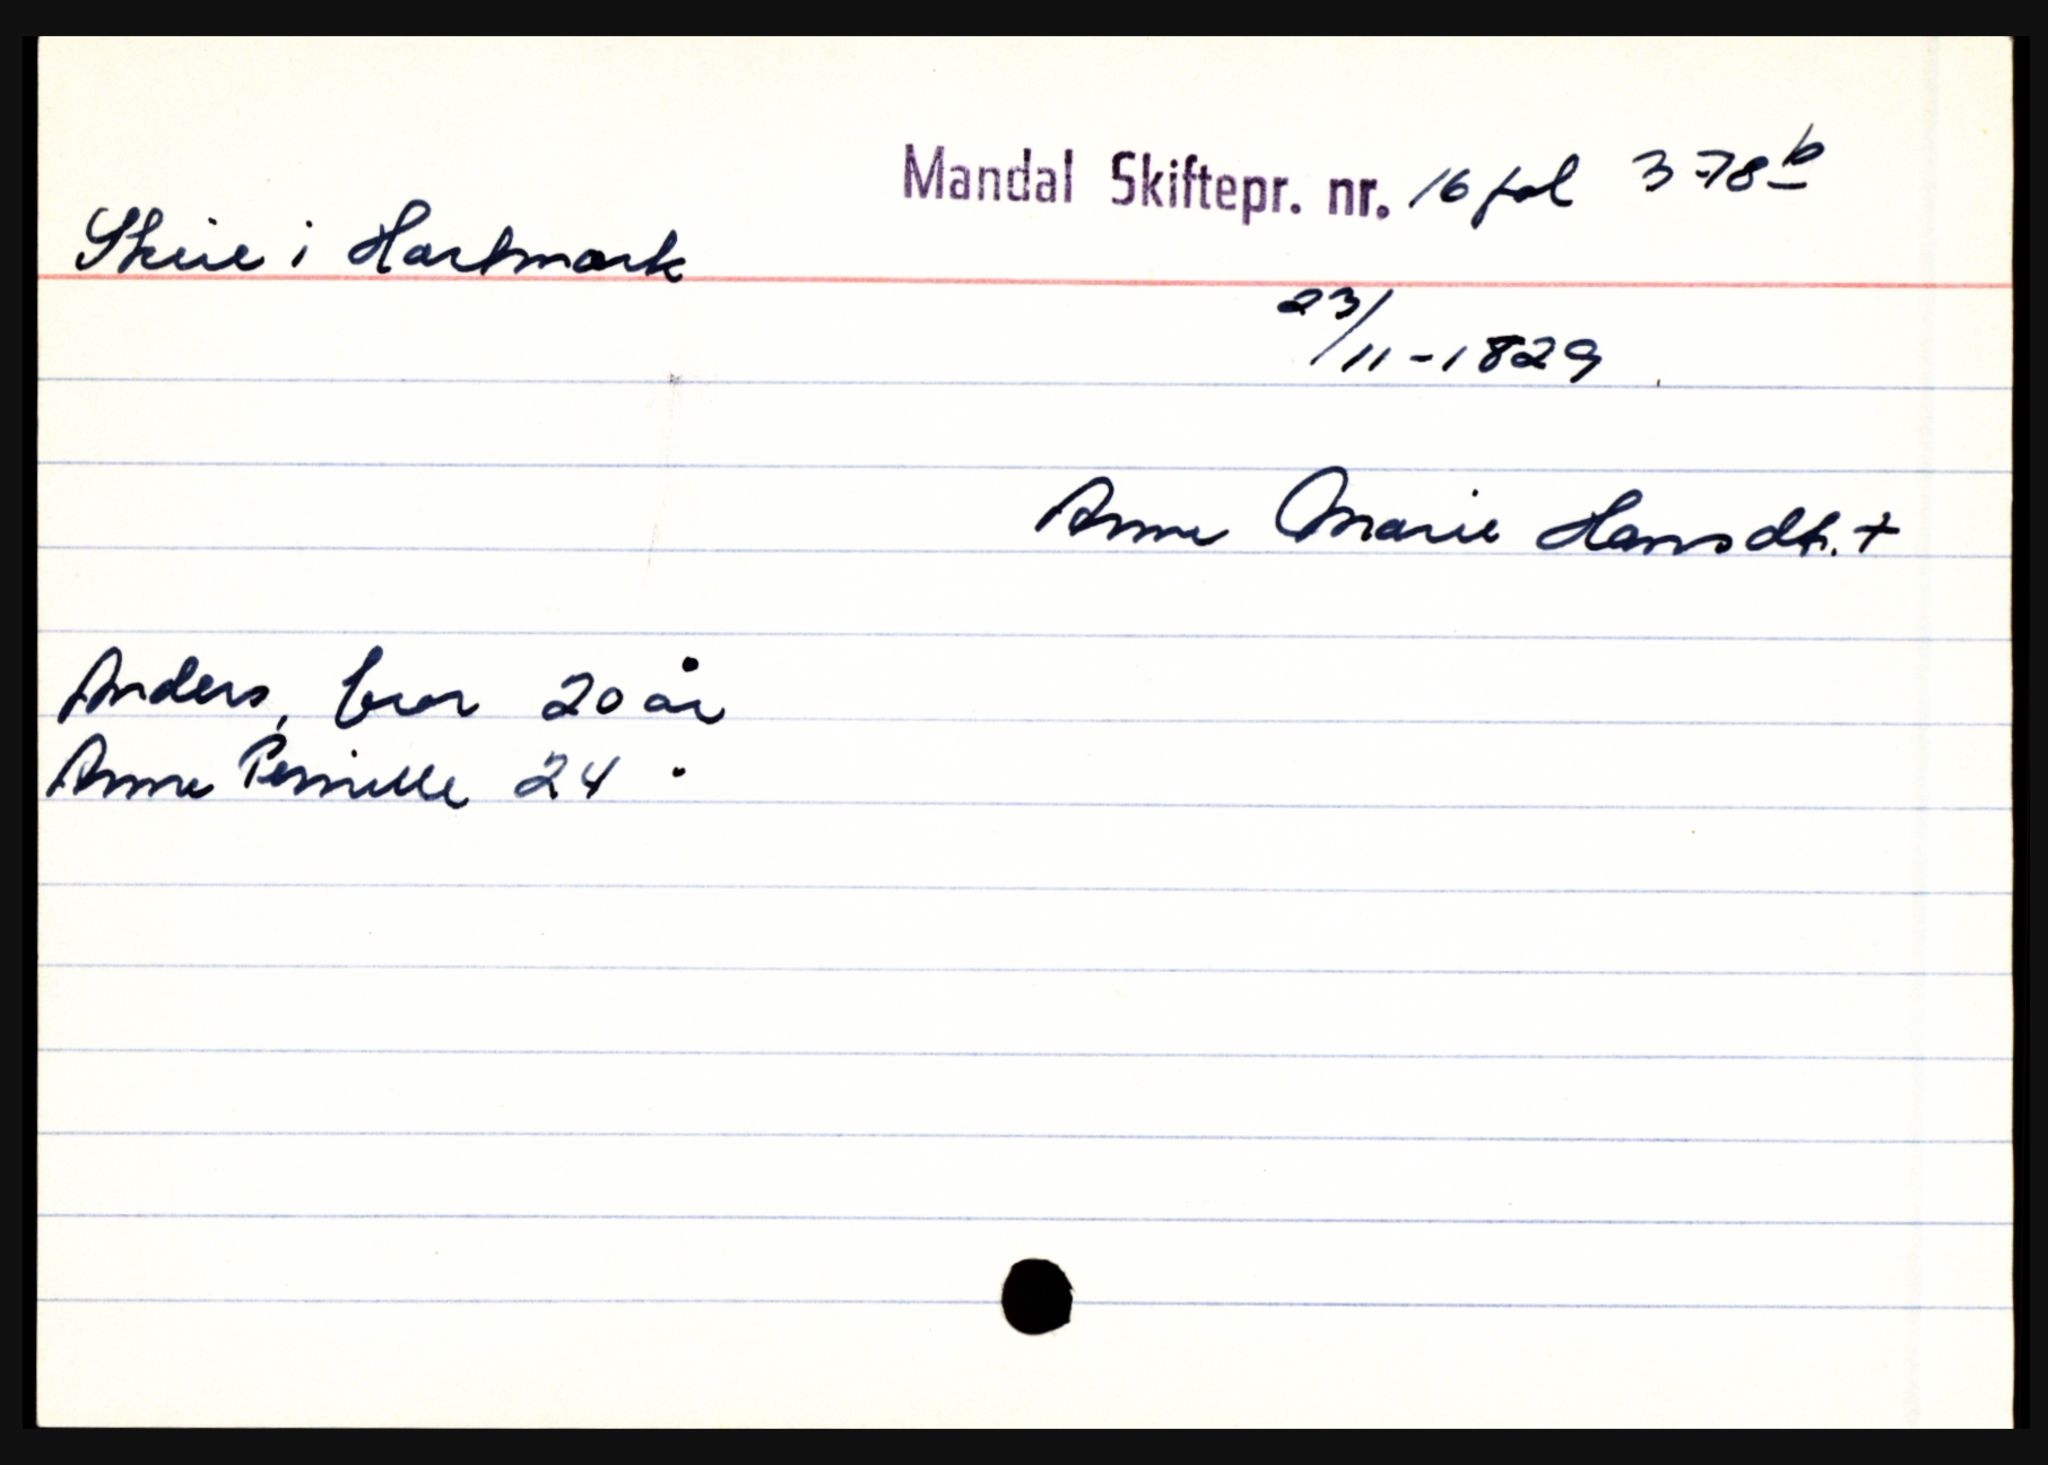 Mandal Skiftepr. nr. 16 fol 378b
Skeie i Hartmark
23/11-1829
Anne Marie Hansdt. +
Anders, bror 20 år
Anne Pernille 24 "